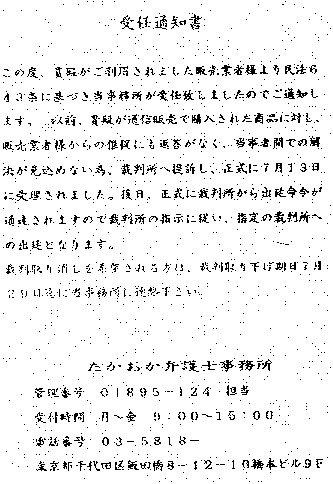 受任通知書
この度、貴殿がご利用されました販売業者様より民法6
43条に基づき当事務所が受任致しましたのでご通知し
ます。 以前、貴殿が通信販売で購入された商品に対し、
販売業者様からの催促にも返答がなく、当事者間での解
決が見込めない為、裁判所へ提訴し、正式に7月13日
に受理されました。後日、正式に裁判所から出廷命令が
通達されますので裁判所の指示に従い、指定の裁判所へ
の出廷となります。
裁判取り消しを希望される方は、裁判取り下げ期日7月
29日迄に当事務所に連絡下さい。
たかおか弁護士事務所
管理番号 01895-124 担当
受付時間 月～金 9:00～15:00
電話番号 03-5818-
東京都千代田区飯田橋8-12-10橋本ビル9F